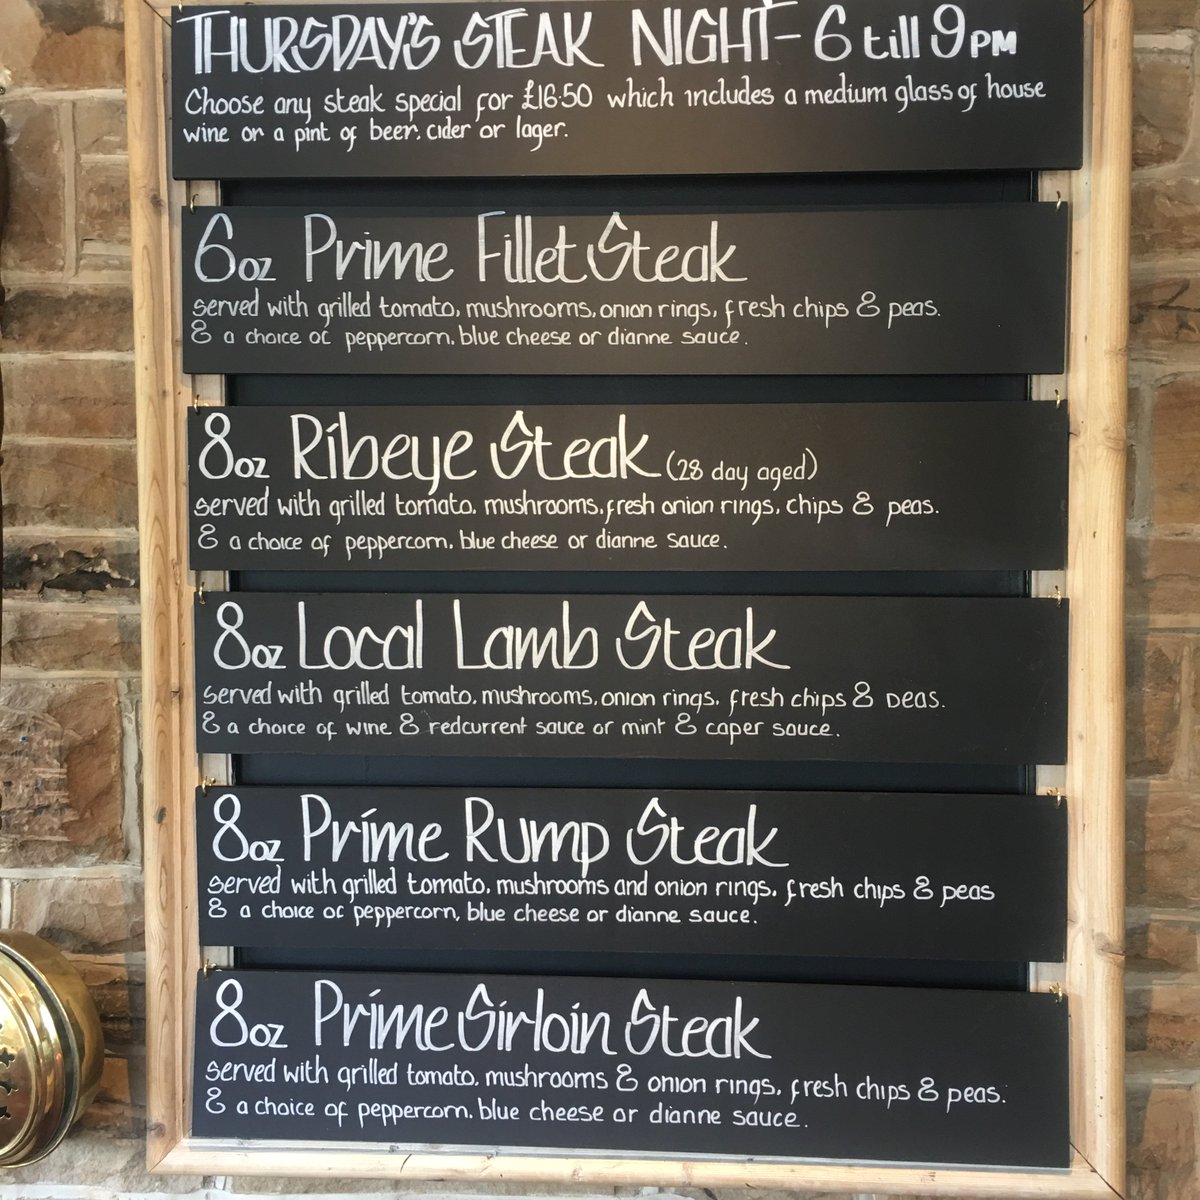 THURSDAY'S STEAK NIGHT - 6 till 9PM
Choose any steak special for £16·50 which includes a medium glass of house
wine or a pint of beer, cider or lager.
6oz Prime Fillet Steak
served with grilled tomato, mushrooms, onion rings, fresh chips & peas.
& a choice of peppercorn, blue cheese or dianne sauce.
8oz Ribeye Steak (28 day aged)
served with grilled tomato, mushrooms, fresh onion rings, chips & peas.
& a choice of peppercorn, blue cheese or dianne sauce.
8oz Local Lamb Steak
served with grilled tomato, mushrooms, onion rings, fresh chips & peas.
& a choice of wine & redcurrent sauce or mint & caper sauce.
8oz Prime Rump Steak
served with grilled tomato, mushrooms and onion rings, fresh chips & peas
& a choice of peppercorn, blue cheese or dianne sauce.
8oz Prime Sirloin Steak
served with grilled tomato, mushrooms & onion rings, fresh chips & peas.
& a choice of peppercorn, blue cheese or dianne sauce.